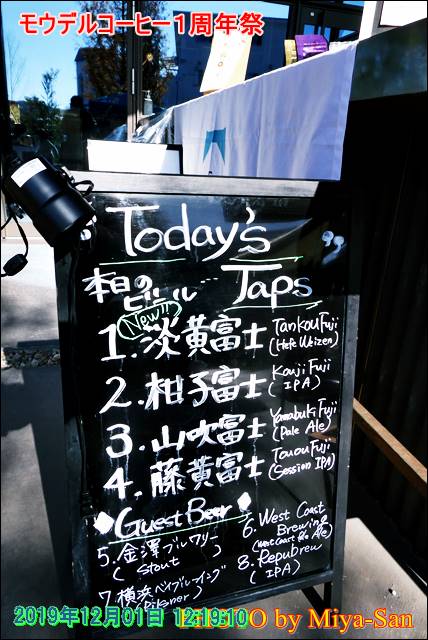 モウデルコーヒー１周年祭
Today's
本日の
ビール… Taps
New!!
1. 淡黄富士 TankouFuji
(Hefe Weizen)
2. 柑子富士 KoujiFuji
(IPA)
3. 山吹富士 YamabukiFuji
(Pale Ale)
4. 藤黄富士 TououFuji
(Session IPA)
◆Guest Beer◆
5. 金澤ブルワリー
(Stout)
6. West Coast
Brewing
(West Coast Ale)
7. 横浜ベイブルーイング
(Pilsner)
8. Repubrew
(IPA)
2019年12月01日 12:19:10
by Miya-San